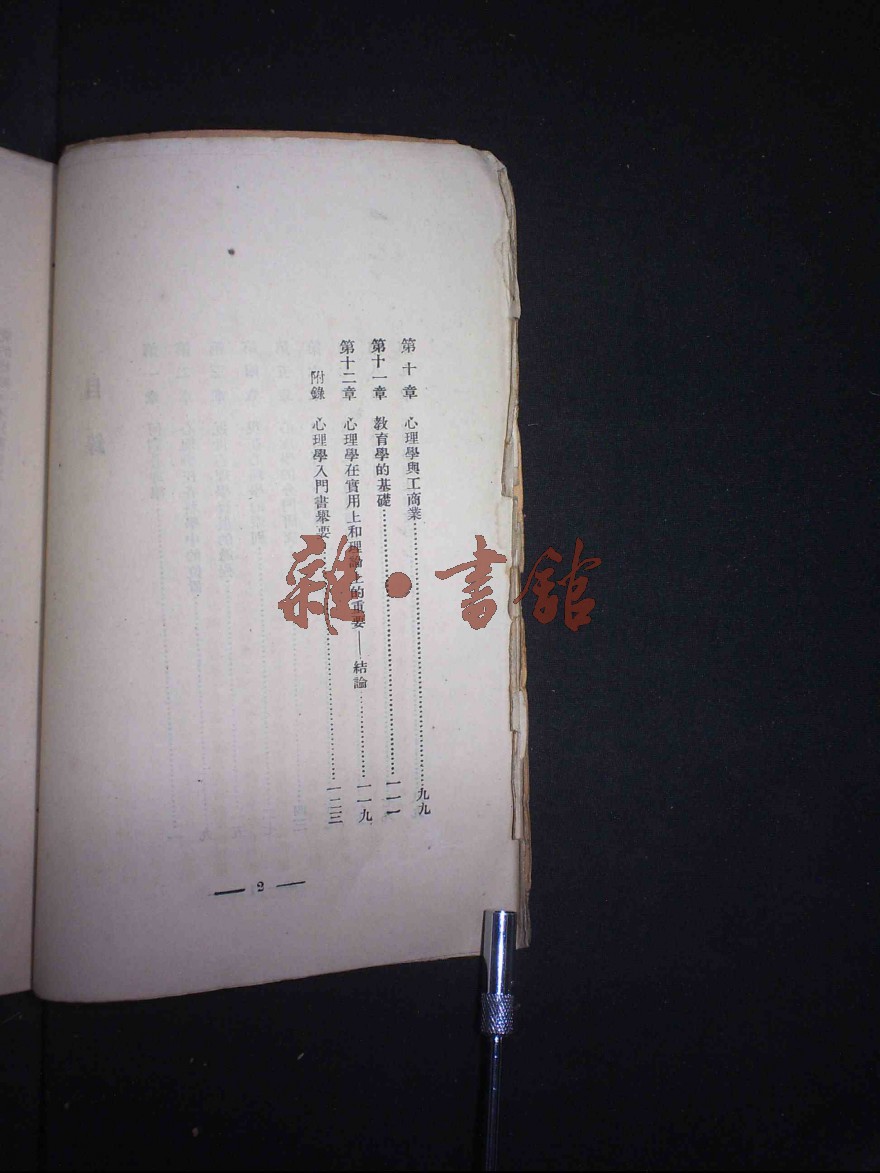 第十章 心理學與工商業……九九
第十一章 教育學的基礎……一一一
第十二章 心理學在實用上和理論上的重要——結論……一一九
附錄 心理學入門書舉要……一二三
— 2 —
雜·書館